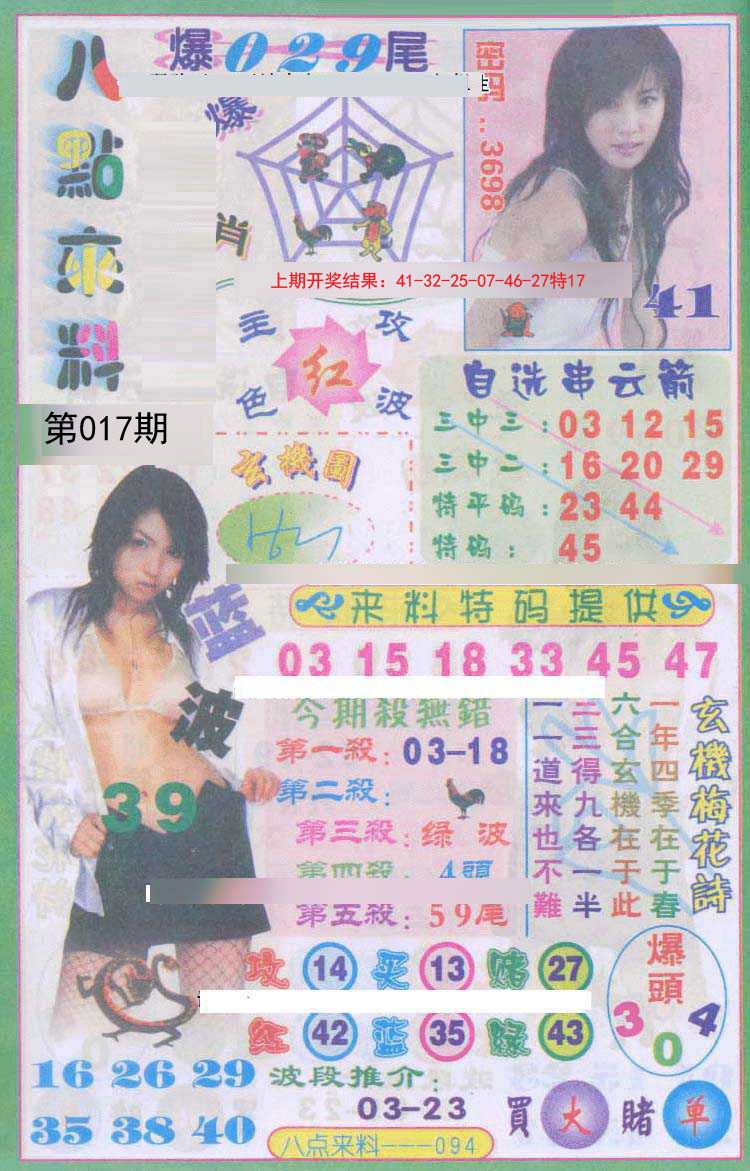 八點來料
爆029尾
爆
肖
密码:3698
41
上期开奖结果：41-32-25-07-46-27特17
主攻
红
色波
第017期
自选串云箭
三中三：03 12 15
三中二：16 20 29
特平码：23 44
特码：45
玄機圖
来料特码提供
03 15 18 33 45 47
蓝波
39
今期殺無錯
第一殺：03-18
第二殺：
第三殺：绿波
第四殺：4頭
第五殺：59尾
玄機梅花詩
一年四季在于春
六合玄機在于此
三三得九各一半
一一道來也不難
攻 14 买 13 赌 27
红 42 蓝 35 绿 43
爆頭
3 0 4
16 26 29
35 38 40
波段推介：
03-23
買大賭单
八点来料---094